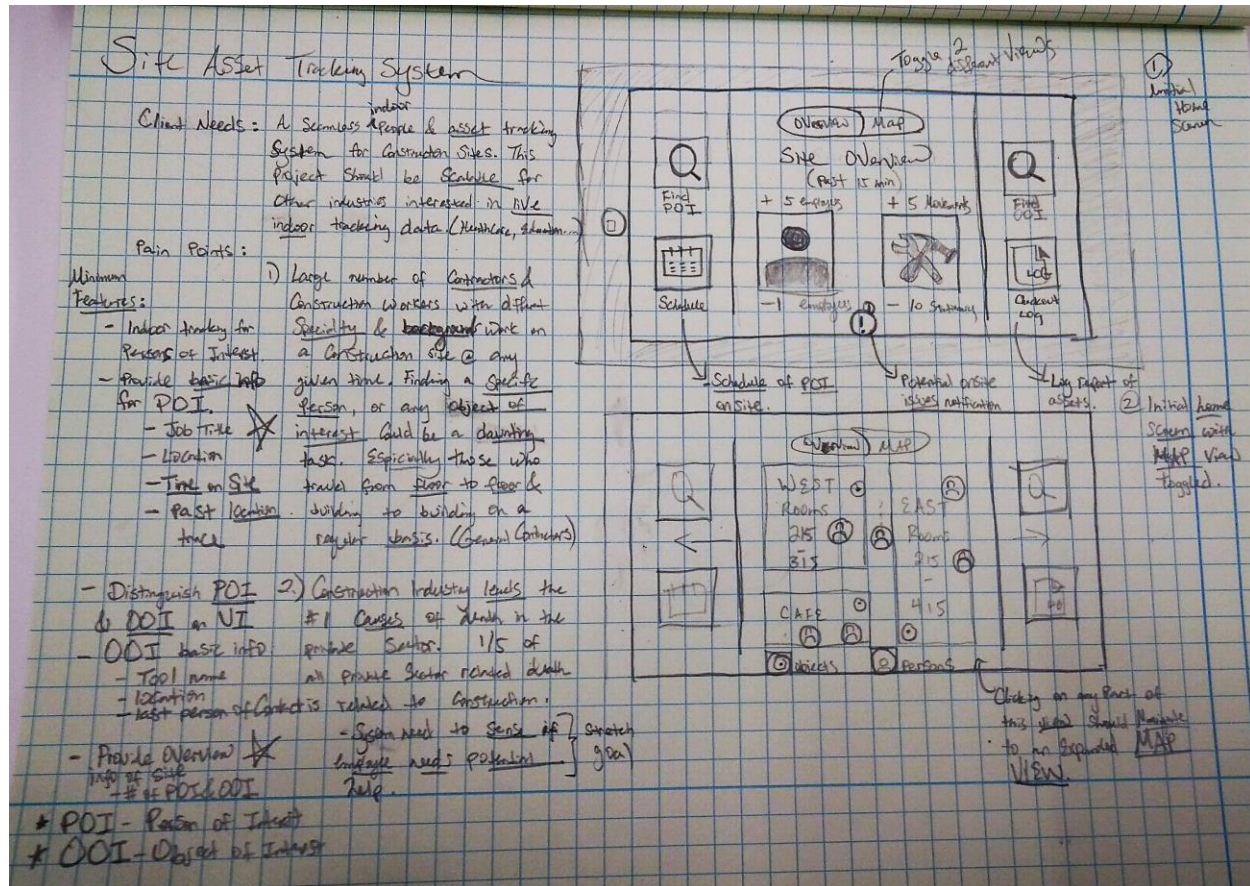 Site Asset Tracking System
Client Needs: A Seamless indoor people & asset tracking
System for Construction Sites. This
Project Should be Scalable for
other industries interested in live
indoor tracking data. (Healthcare, Education...)
Pain Points:
1) Large number of Contractors &
Construction workers with
Specialty & background work on
a Construction site @ any
given time. Finding a Specific
Person, or any object of
interest Could be a daunting
task. Espicially those who
travel from floor to floor &
building to building on a
regular basis. (General Contractors)
2.) Construction Industry leads the
#1 Causes of death in the
private Sector. 1/5 of
all private Sector related death
is related to Construction.
- System need to Sense if
employee needs potential
help.
Stretch
goal
Minimum
Features:
- Indoor tracking for
Persons of Interest.
- Provide basic info
for POI.
- Job Title
- Location
- Time on Site
- Past location
trace
- Distinguish POI
& OOI on UI
- OOI basic info
- Tool name
- location
- last person of Contact
- Provide Overview
info of Site
- # of POI & OOI
* POI - Person of Interest
* OOI - Object of Interest
Toggle 2
different Views
1
Initial
Home
Screen
OVERVIEW MAP
Site Overview
(Past 15 min)
Find
POI
+ 5 employees
+ 5 Movements
Find
OOI
LOG
Schedule
- 1 employees
- 10 Stationary
!
Checkout
Log
Schedule of POI
onsite.
Potential onsite
issues notification
Log report of
assets.
2 Initial home
Screen with
MAP View
toggled.
Overview MAP
WEST
Rooms
215
-
315
EAST
Rooms
215
-
415
CAFE
objects
Persons
Clicking on any Part of
this view Should Navigate
to an Expanded MAP
VIEW.